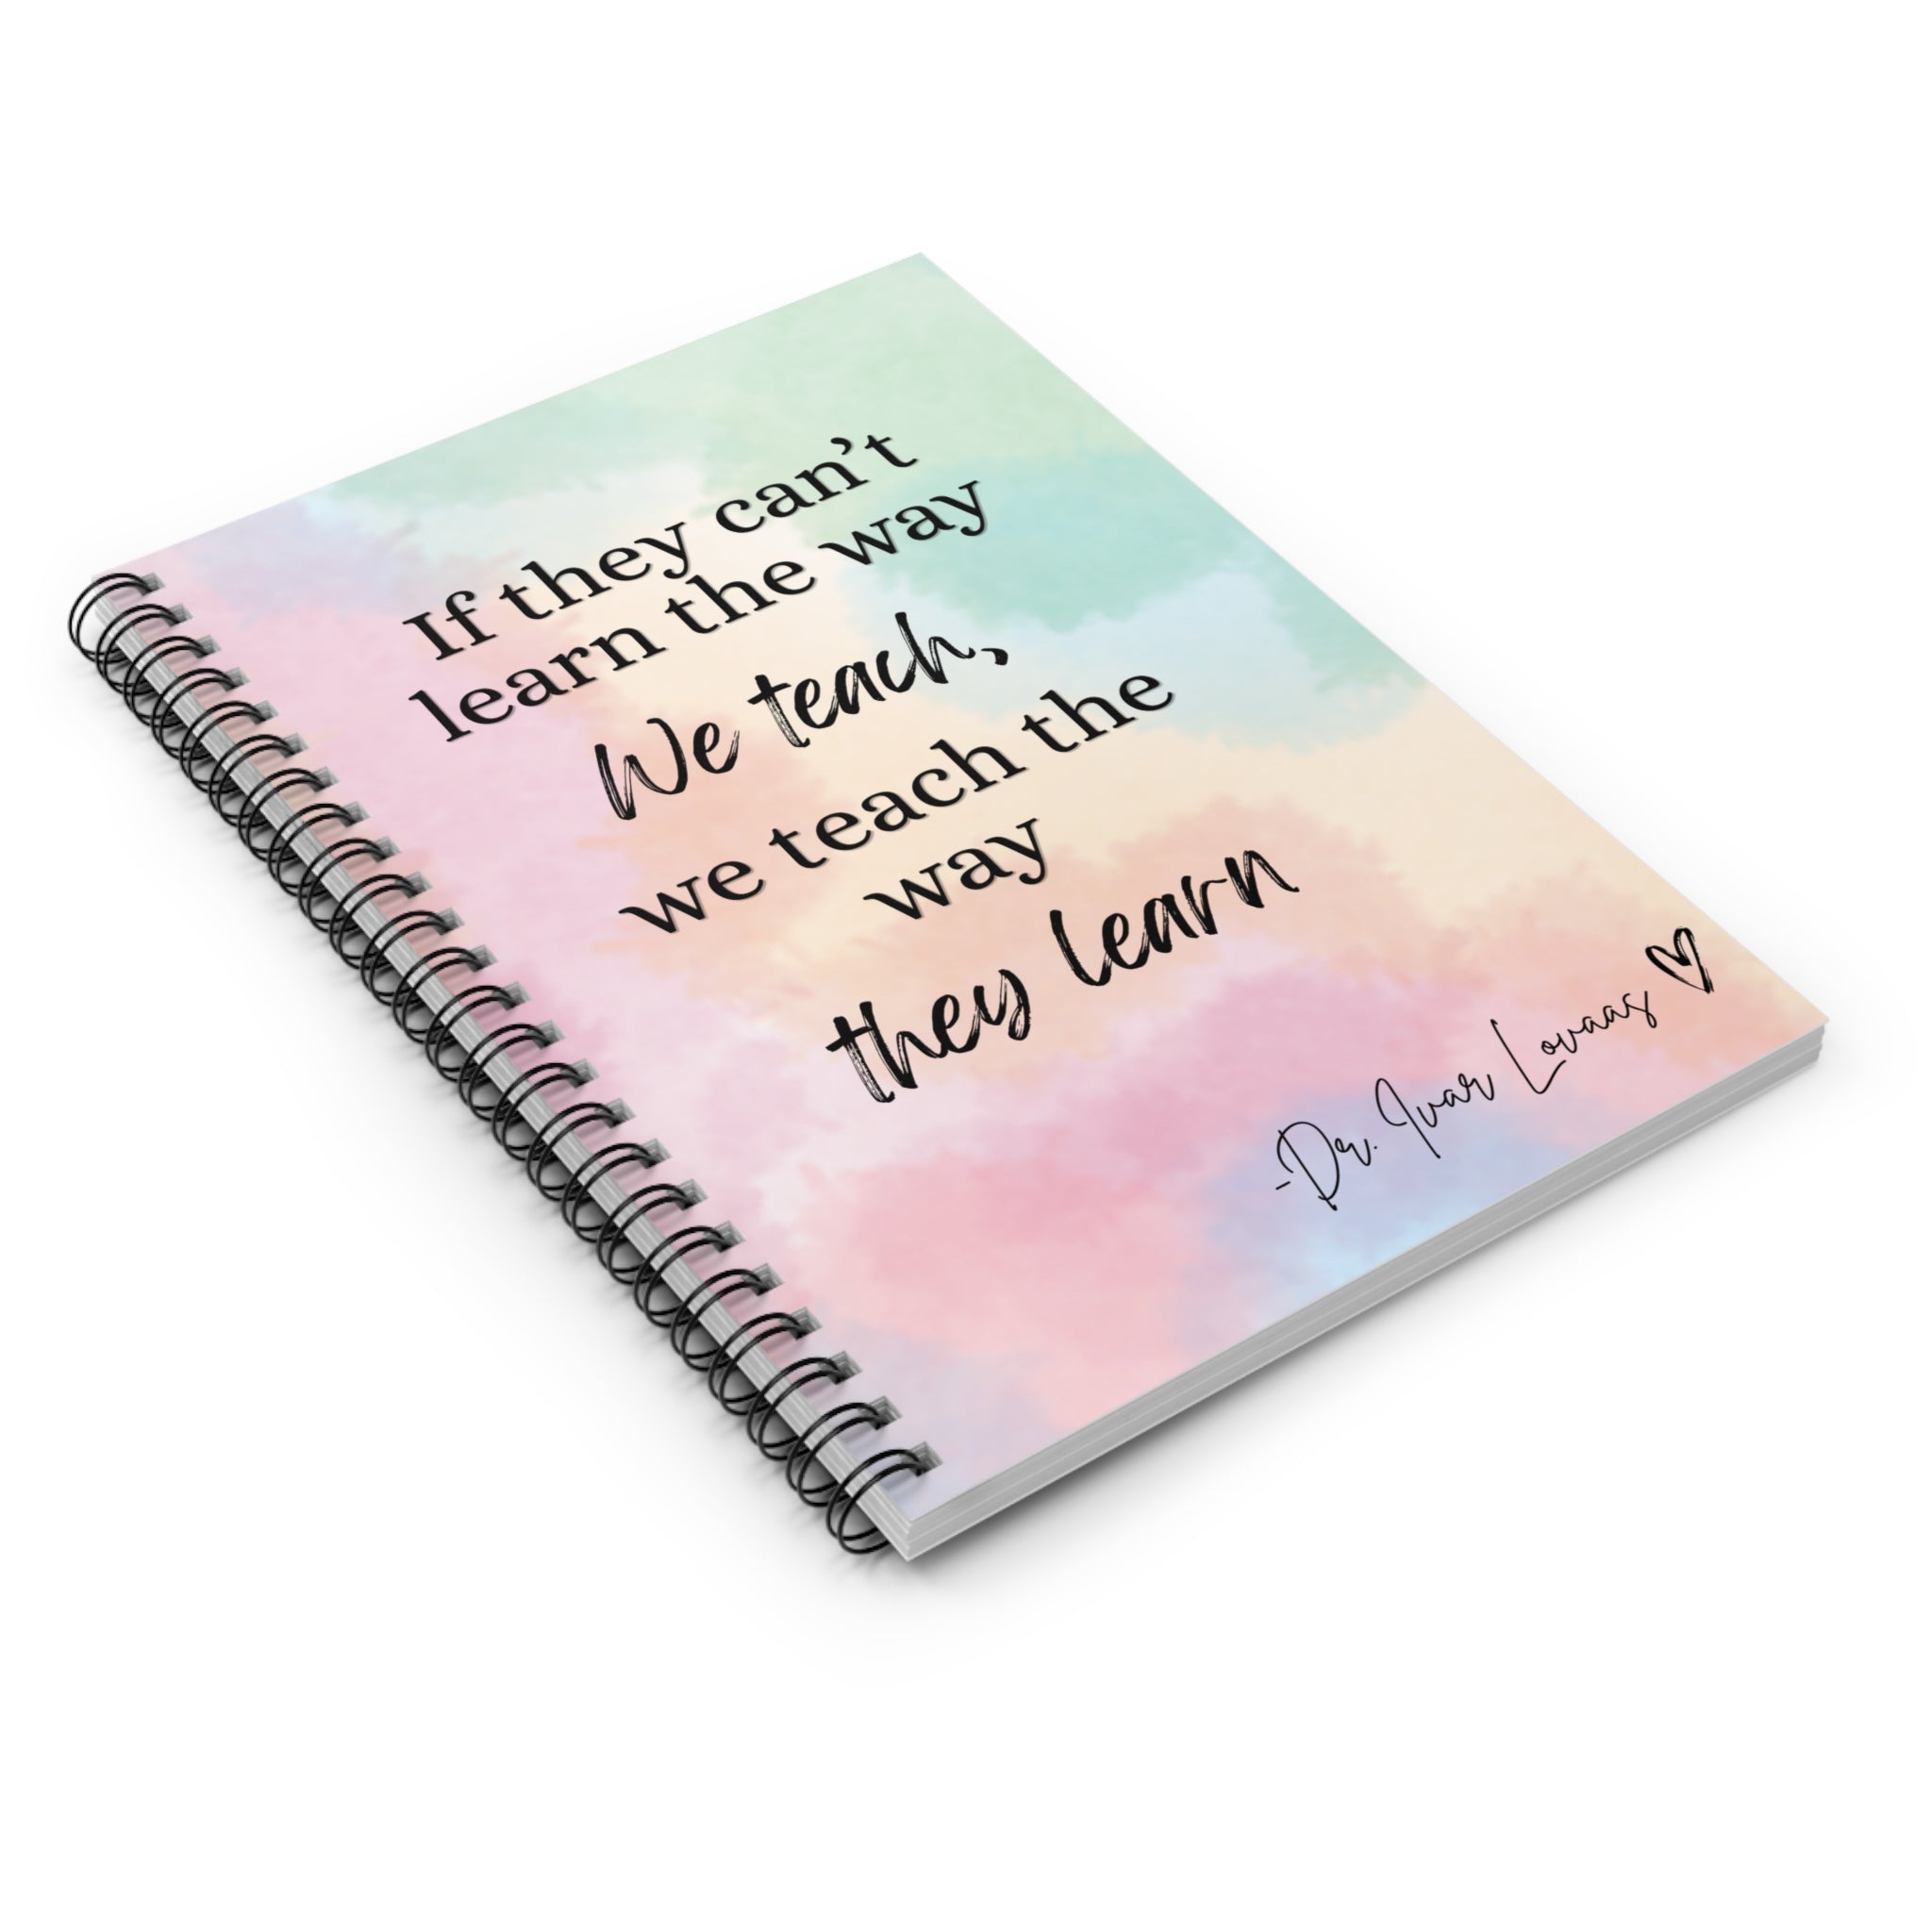 If they can’t
learn the way
We teach,
we teach the
way
they learn
-Dr. Ivar Lovaas